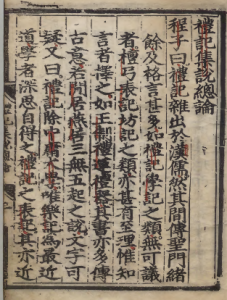 禮記集說總論
程子曰禮記雜出於漢儒然其間傳聖門緒
餘及格言甚多如禮記學記之類無可議
者檀弓表記坊記之類亦甚有至理惟知
言者擇之如王制禮運禮器其書亦多傳
古意若閒居燕居三無五起之說文字可
疑又曰禮記除中庸大學唯樂記爲最近
道學者深思自得之禮記之表記其亦近